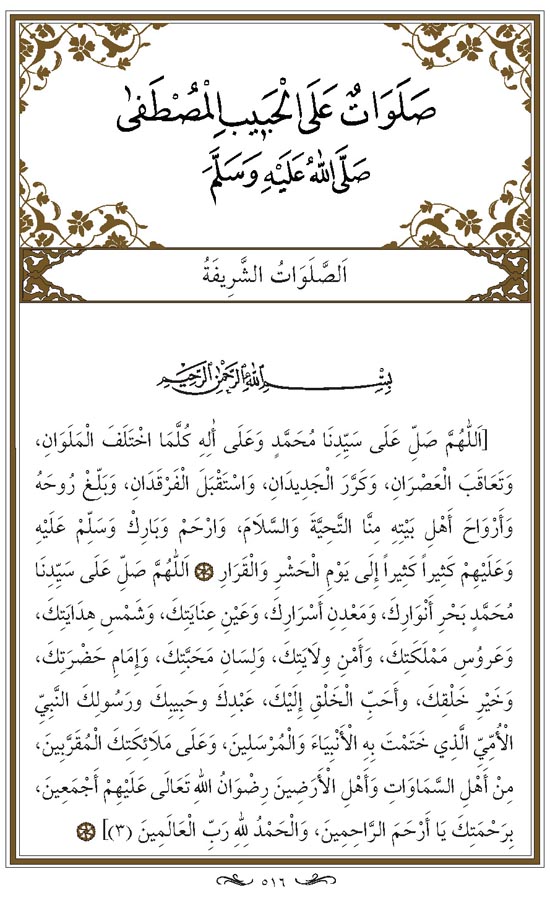 صَلَوَاتٌ عَلَى الْحَبِيبِ الْمُصْطَفىٰ
صَلَّى اللهُ عَلَيْهِ وَسَلَّمَ
اَلصَّلَوَاتُ الشَّرِيفَةُ
بِسْمِ اللهِ الرَّحْمٰنِ الرَّحِيمِ
[اَللّٰهُمَّ صَلِّ عَلَى سَيِّدِنَا مُحَمَّدٍ وَعَلَى أٰلِهِ كُلَّمَا اخْتَلَفَ الْمَلَوَانِ،
وَتَعَاقَبَ الْعَصْرَانِ، وَكَرَّرَ الْجَدِيدَانِ، وَاسْتَقْبَلَ الْفَرْقَدَانِ، وَبَلِّغْ رُوحَهُ
وَأَرْوَاحَ أَهْلِ بَيْتِهِ مِنَّا التَّحِيَّةَ وَالسَّلَامَ، وَارْحَمْ وَبَارِكْ وَسَلِّمْ عَلَيْهِ
وَعَلَيْهِمْ كَثِيراً كَثِيراً إِلَى يَوْمِ الْحَشْرِ وَالْقَرَارِ ۞ اَللّٰهُمَّ صَلِّ عَلَى سَيِّدِنَا
مُحَمَّدٍ بَحْرِ أَنْوَارِكَ، وَمَعْدِنِ أَسْرَارِكَ، وَعَيْنِ عِنَايَتِكَ، وَشَمْسِ هِدَايَتِكَ،
وَعَرُوسِ مَمْلَكَتِكَ، وَأَمْنِ وِلَايَتِكَ، وَلِسَانِ مَحَبَّتِكَ، وَإِمَامِ حَضْرَتِكَ،
وَخَيْرِ خَلْقِكَ، وَأَحَبِّ الْخَلْقِ إِلَيْكَ، عَبْدِكَ وَحَبِيبِكَ وَرَسُولِكَ النَّبِيِّ
الْأُمِّيِّ الَّذِي خَتَمْتَ بِهِ الْأَنْبِيَاءَ وَالْمُرْسَلِينَ، وَعَلَى مَلَائِكَتِكَ الْمُقَرَّبِينَ،
مِنْ أَهْلِ السَّمَاوَاتِ وَأَهْلِ الْأَرَضِينَ رِضْوَانُ اللهِ تَعَالَى عَلَيْهِمْ أَجْمَعِينَ،
بِرَحْمَتِكَ يَا أَرْحَمَ الرَّاحِمِينَ، وَالْحَمْدُ لِلّٰهِ رَبِّ الْعَالَمِينَ (٣)] ۞
٥١٦